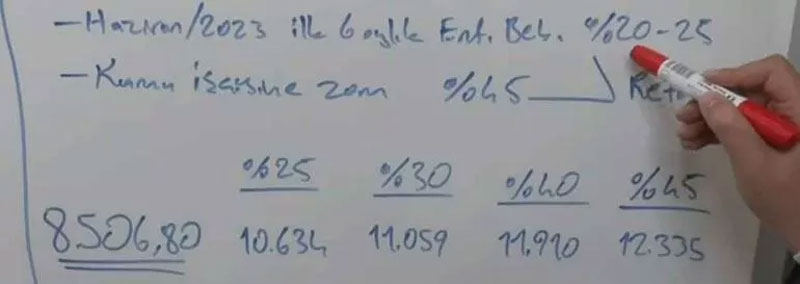 - Haziran/2023 ilk 6 aylık Enf. Bek. %20-25
- Kamu işçisine zam %45 Ref
%25 %30 %40 %45
8506,80 10.634 11.059 11.910 12.335